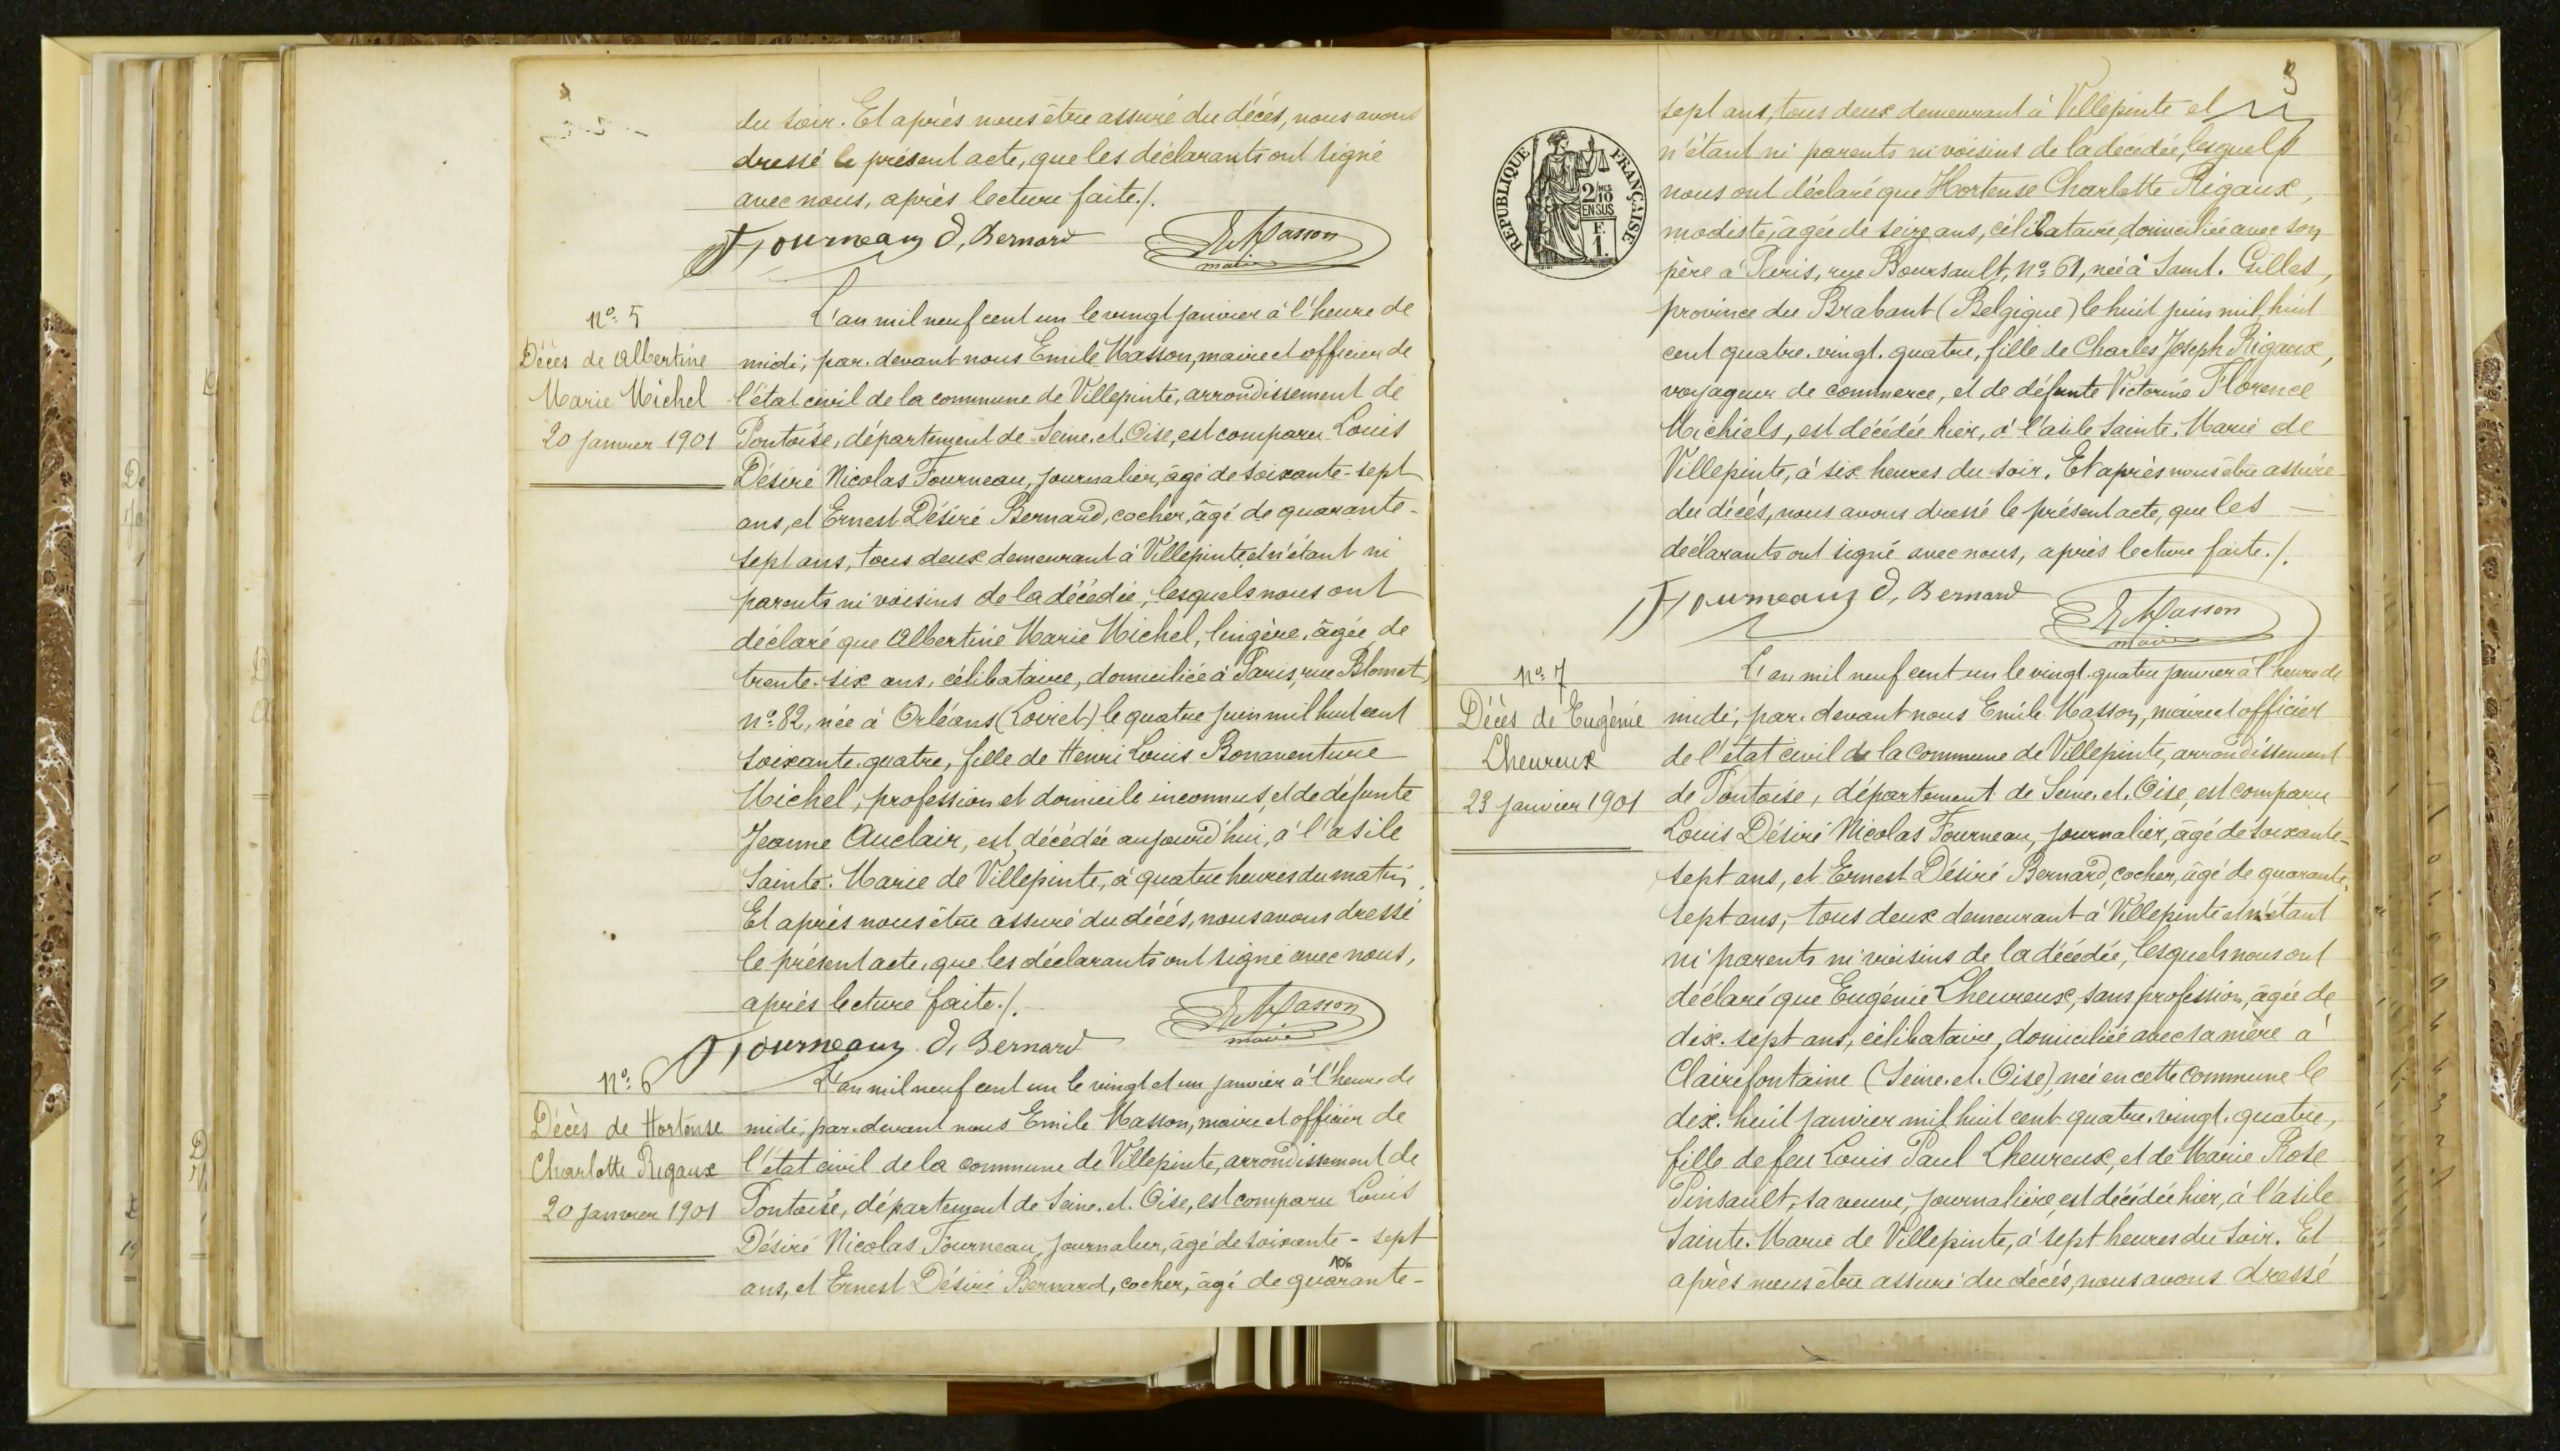 du soir. Et après nous être assuré du décès, nous avons
dressé le présent acte, que les déclarants ont signé
avec nous, après lecture faite./.
Fourneaux D, Bernard E Masson
maire
N° 5
Décès de Albertine
Marie Michel
20 janvier 1901
L'an mil neuf cent un le vingt janvier à l'heure de
midi, par-devant nous Emile Masson, maire et officier de
l'état civil de la commune de Villepinte, arrondissement de
Pontoise, département de Seine-et-Oise, est comparu Louis
Désiré Nicolas Fourneau, journalier, âgé de soixante-sept
ans, et Ernest Désiré Bernard, cocher, âgé de quarante-
sept ans, tous deux demeurant à Villepinte et n'étant ni
parents ni voisins de la décédée, lesquels nous ont
déclaré que Albertine Marie Michel, lingère, âgée de
trente-six ans, célibataire, domiciliée à Paris, rue Blomet,
n° 82, née à Orléans (Loiret) le quatre juin mil huit cent
soixante-quatre, fille de Henri Louis Bonaventure
Michel, profession et domicile inconnus, et de défunte
Jeanne Auclair, est décédée aujourd'hui, à l'asile
Sainte-Marie de Villepinte, à quatre heures du matin.
Et après nous être assuré du décès, nous avons dressé
le présent acte, que les déclarants ont signé avec nous,
après lecture faite./.
Fourneaux D, Bernard E Masson
maire
N° 6
Décès de Hortense
Charlotte Rigaux
20 janvier 1901
L'an mil neuf cent un le vingt et un janvier à l'heure de
midi, par-devant nous Emile Masson, maire et officier de
l'état civil de la commune de Villepinte, arrondissement de
Pontoise, département de Seine-et-Oise, est comparu Louis
Désiré Nicolas Fourneau, journalier, âgé de soixante-sept
ans, et Ernest Désiré Bernard, cocher, âgé de quarante-
106
RÉPUBLIQUE FRANÇAISE
2/10 EN SUS
F. 1.
sept ans, tous deux demeurant à Villepinte et
n'étant ni parents ni voisins de la décédée, lesquels
nous ont déclaré que Hortense Charlotte Rigaux,
modiste, âgée de seize ans, célibataire, domiciliée avec son
père à Paris, rue Boursault, n° 61, née à Saint-Gilles,
province du Brabant (Belgique) le huit juin mil huit
cent quatre-vingt-quatre, fille de Charles Joseph Rigaux,
voyageur de commerce, et de défunte Victorine Florence
Michiels, est décédée hier, à l'asile Sainte-Marie de
Villepinte, à six heures du soir. Et après nous être assuré
du décès, nous avons dressé le présent acte, que les
déclarants ont signé avec nous, après lecture faite./.
Fourneaux D, Bernard E Masson
maire
N° 7
Décès de Eugénie
Lheureux
23 janvier 1901
L'an mil neuf cent un le vingt-quatre janvier à l'heure de
midi, par-devant nous Emile Masson, maire et officier
de l'état civil de la commune de Villepinte, arrondissement
de Pontoise, département de Seine-et-Oise, est comparu
Louis Désiré Nicolas Fourneau, journalier, âgé de soixante-
sept ans, et Ernest Désiré Bernard, cocher, âgé de quarante-
sept ans, tous deux demeurant à Villepinte et n'étant
ni parents ni voisins de la décédée, lesquels nous ont
déclaré que Eugénie Lheureux, sans profession, âgée de
dix-sept ans, célibataire, domiciliée avec sa mère à
Clairefontaine (Seine-et-Oise), née en cette commune le
dix-huit janvier mil huit cent quatre-vingt-quatre,
fille de feu Louis Paul Lheureux, et de Marie Rose
Pinsault, sa veuve, journalière, est décédée hier, à l'asile
Sainte-Marie de Villepinte, à sept heures du soir. Et
après nous être assuré du décès, nous avons dressé